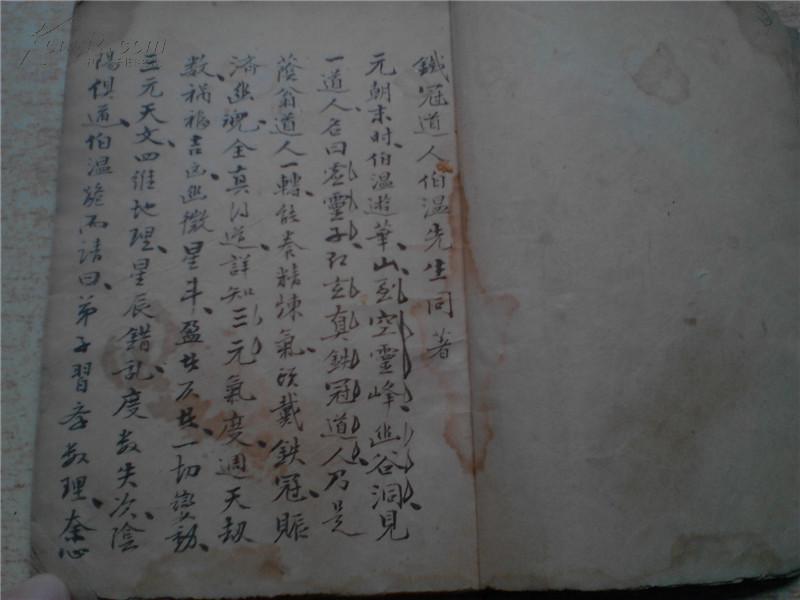 鐵冠道人伯温先生同著
元朝末时伯温遊華山到空靈峰幽谷洞見
一道人名曰虚靈子玄真鉄冠道人乃是
蔭翁道人一轉能养精煉氣頭戴鉄冠賑
濟幽魂全真得道詳知三元氣度週天劫
数禍福吉凶幽微星斗盈一切變動
三元天文四维地理星辰錯乱度数失次陰
陽俱通伯温跪而請曰弟子習学数理奈心